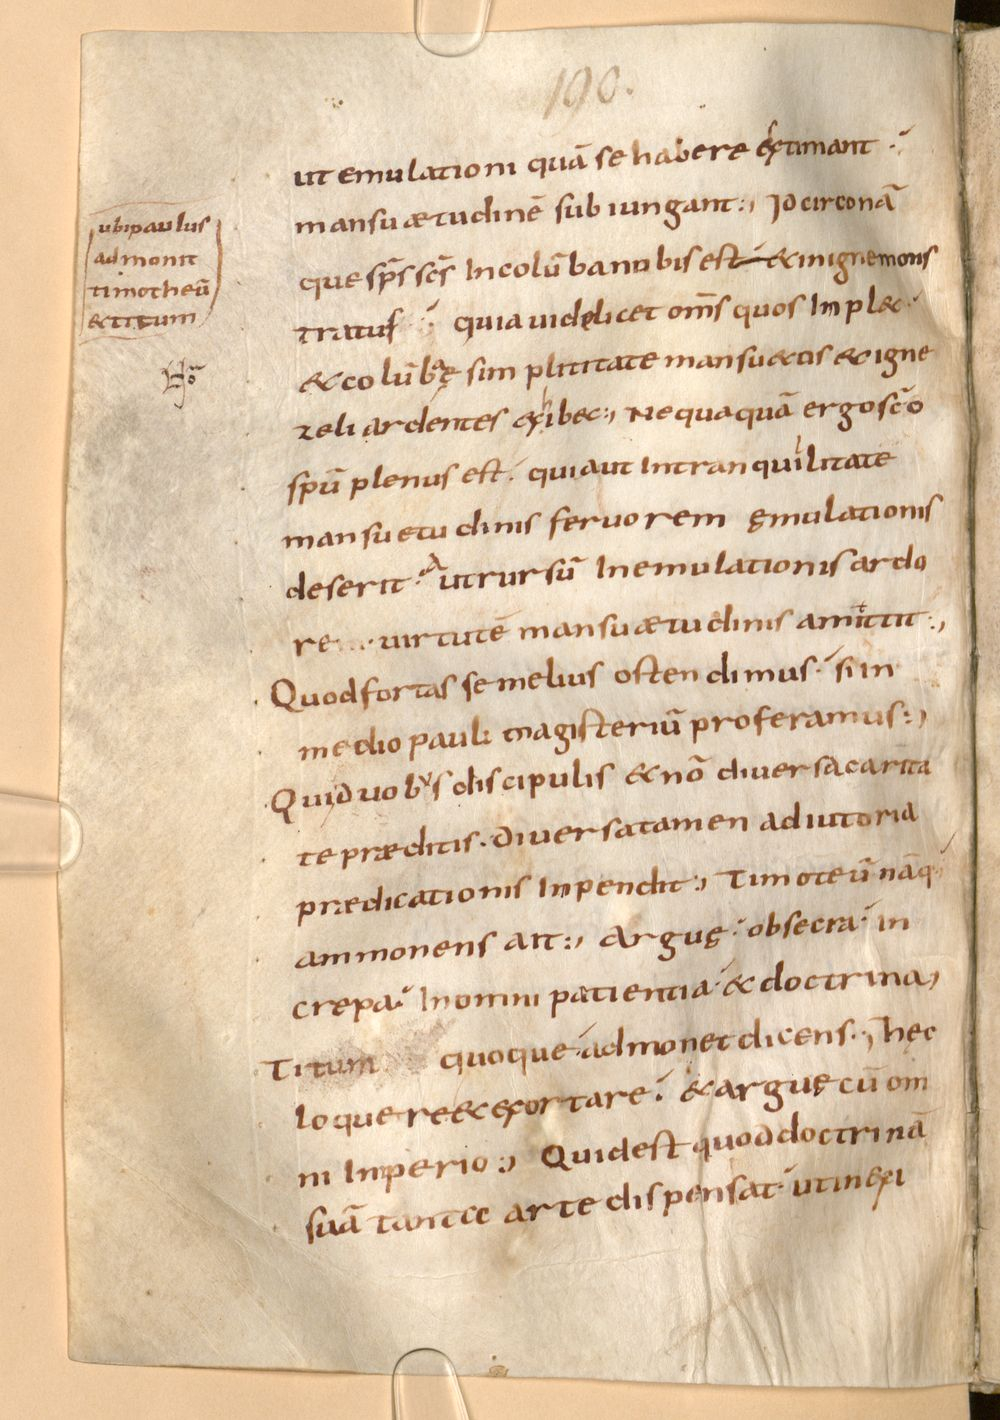 190.
ut emulationi quā se habere extimant
mansuætudinē subiungant:, Idcirco nā
que sps̄ scs̄ In colūba nobis est & in igne mons
tratus quia uidelicet oms̄ quos Inpl&
& colūbę simplititate mansu&os & igne
zeli ardentes exhibec:, Nequaquā ergo sc̄o
spū plenus est. qui aut In tranquilitate
mansuetudinis feruorem ęmulationis
deserit. Aut rursū In emulationis ardo
re uirtutē mansuætudinis amittit:,
Quod fortasse melius ostendimus. si in
medio pauli magisteriū proferamus:,
Quid uobis discipulis & nō diuersa carita
te præditis. Diuersa tamen adiutoria
prædicationis Inpendit:, Timoteū nāq;
ammonens ait:, Arguę. obsecra. in
crepa. In omni patientia. & doctrina,
Titum quoque admonet dicens., hęc
loquere & exortare. & arguę cū om
ni Imperio:, Quid est quod doctrinā
suā tante arte dispensat. ut in exi
ubi paulus
admonit
timotheū
& titum